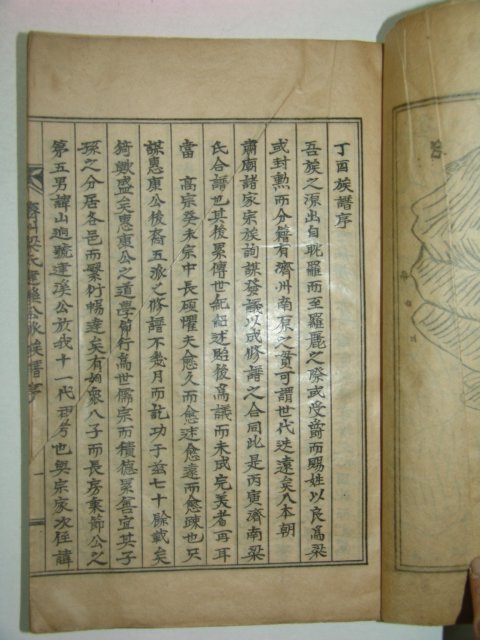 丁酉族譜序
吾族之源出自耽羅而至羅麗之際或受爵而賜姓以良爲梁
或封勳而分籍有濟州南原之貫可謂世代迭遠矣入本朝
肅廟諸家宗族詢謀發議以或修譜之合同此是丙寅濟南梁
氏合譜也其後累傳世紀記述貽後爲議而未成完美者再耳
當 高宗癸未宗中長碩懼夫愈久而愈迷愈遠而愈疎也只
謀惠康公後裔五派之修譜不幾月而訖功于玆七十餘載矣
猗歟盛矣惠康公之道學節行爲世儒宗而積德累善宜其子
孫之分居各邑而繁衍暢達矣有始衆八子而長房秉節公之
第五男諱山逈號達溪公放我十一代祖考也與宗家次侄諱
濟州梁氏惠康公派族譜序